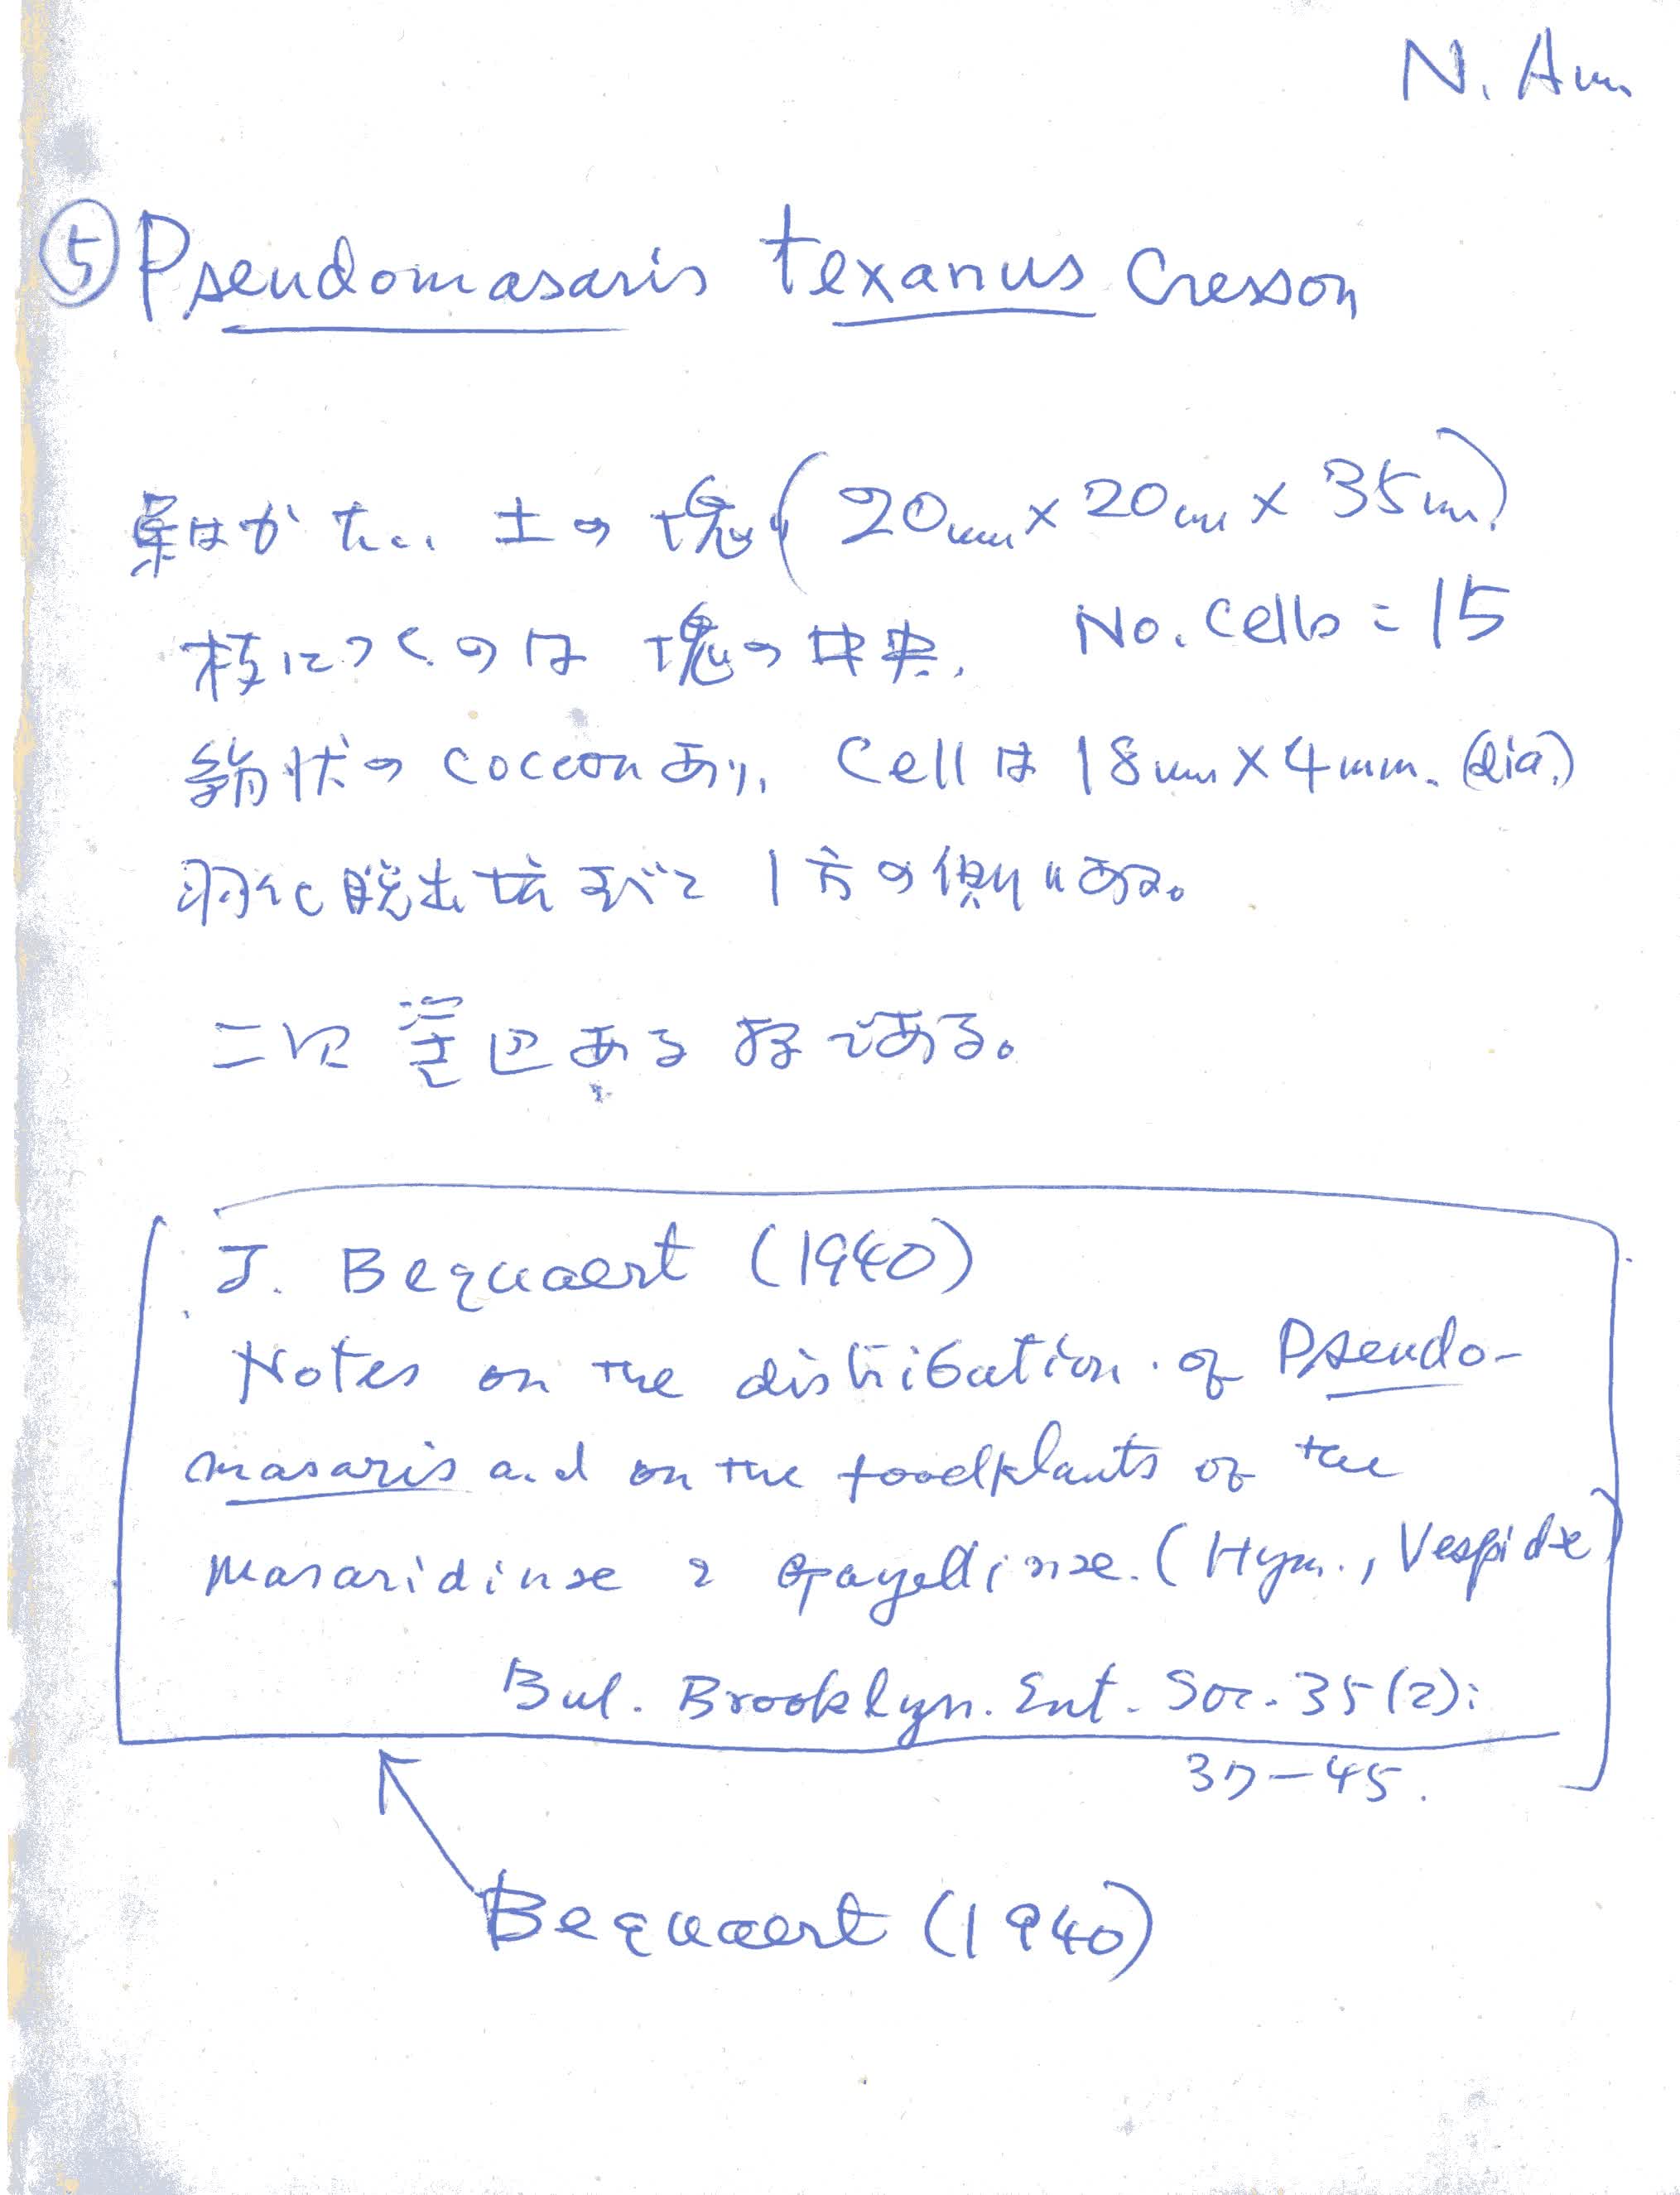 N. Am
⑤ Pseudomasaris texanus Cresson
巣はかたい 土の塊 (20mm × 20mm × 35mm)
枝につくのは 塊の中央. No. Cells = 15
状の cocoonあり, Cellは 18mm × 4mm. (dia.)
羽化脱出坑すべて 1方の側にある。
ある
J. Bequaert (1940)
Notes on the distribution of Pseudo-
masaris and on the foodplants of the
Masaridinae & Gayellinae. (Hym., Vespidae)
Bul. Brooklyn. Ent. Soc. 35(2):
37-45.
Bequaert (1940)